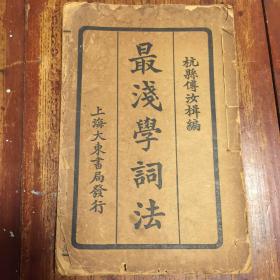 杭縣傅汝楫編
最淺學詞法
上海大東書局發行